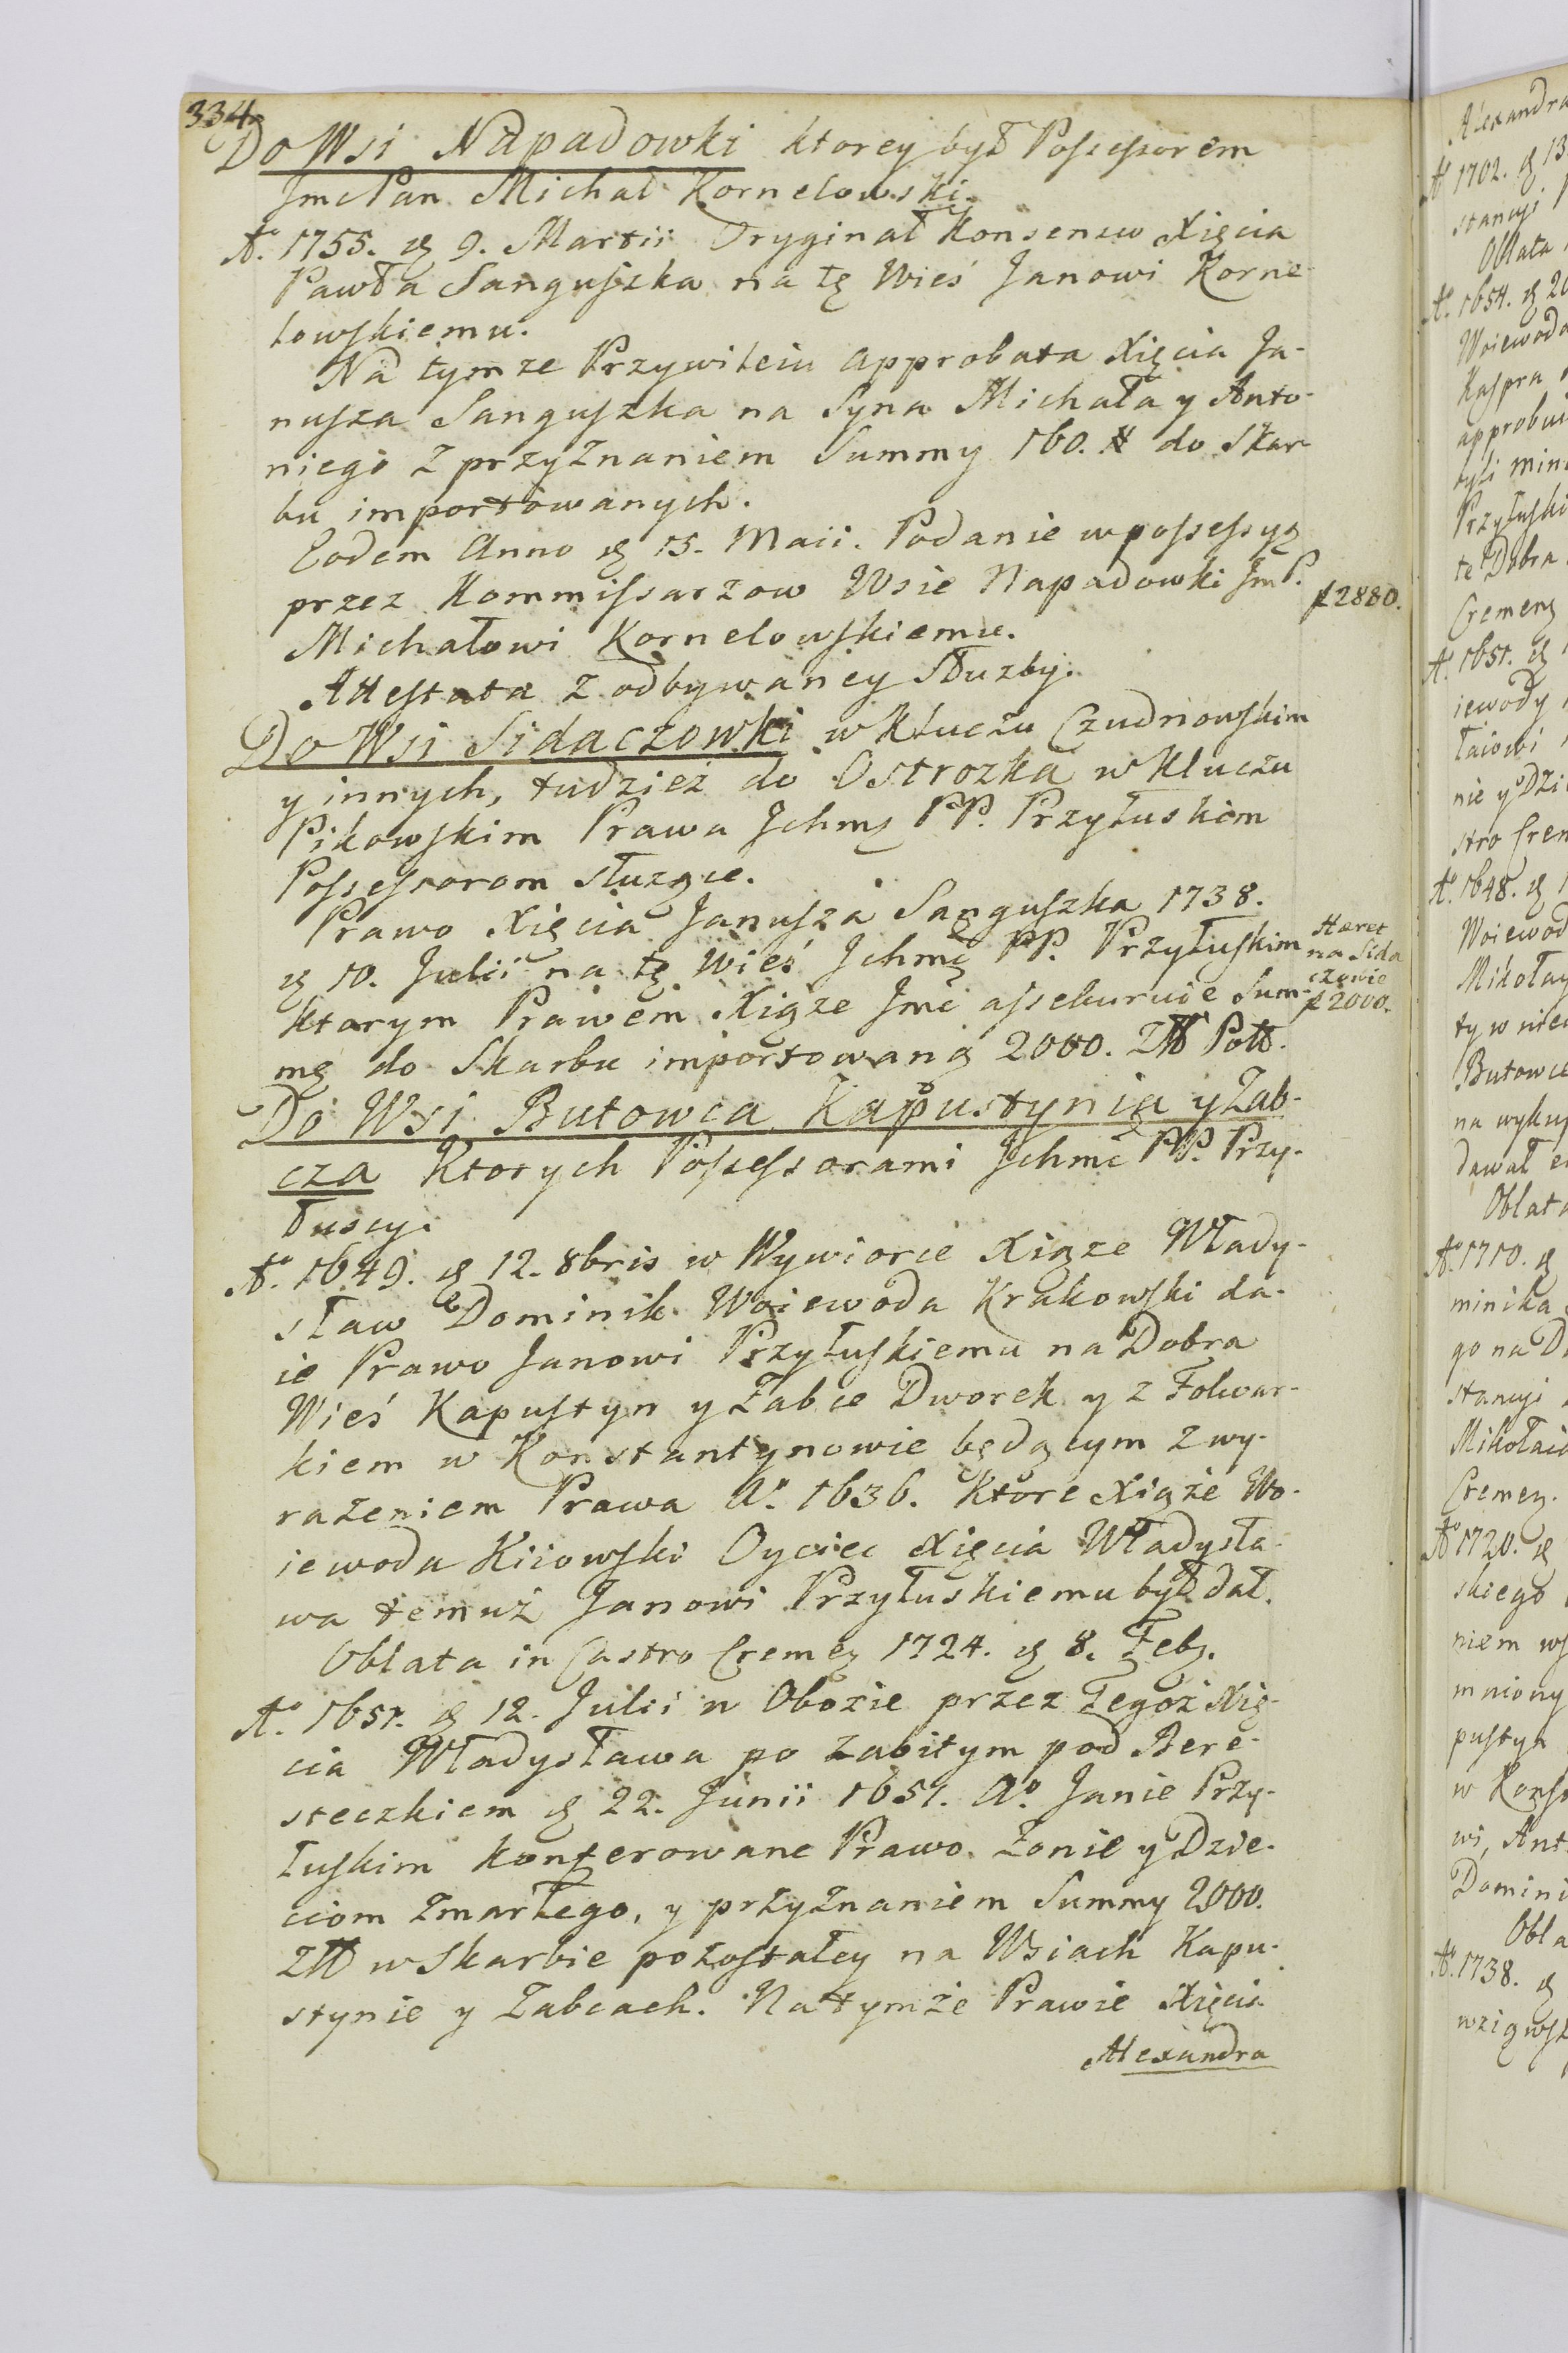 334
Do Wsi Napadowki ktorey był Possessorem
Jmc Pan Michał Kornelowski.
Aº. 1755. d 9. Martii Oryginał Konsensu Xięcia
Pawła Sanguszka na tę Wieś Janowi Korne-
lowskiemu.
Na tymze Przywileiu approbata Xięcia Ja-
nusza Sanguszka na Syna Michała y Anto-
niego z przyznaniem Summy 160. # do Skar-
bu importowanych.
Eodem Anno d 15. Maii. Podanie w possessyą
przez Kommissarzow Wsie Napadowki Jm P.
Michałowi Kornelowskiemu.
f 2880.
Attestata z odbywaney służby.
Do Wsi Sidaczowki w Kluczu Czudnowskim
y innych, tudzież do Ostrozka w Kluczu
Pikowskim Prawa Jchmc PP. Przyłuskim
Possessorom służące.
Prawo Xięcia Janusza Sanguszka 1738.
d 10. Julii na tę Wieś Jchmć PP. Przyłuskim
ktorym Prawem Xiąże Jmć assekuruie Sum-
mę do Skarbu importowaną 2000. Złł Poll.
Hæret
na Sida
czowie
f 2000.
Do Wsi Butowca Kapustynia y Zab-
cza Ktorych Possessorami Jchmć PP. Przy-
łuscy.
Aº. 1649. d 12. 8bris w Wywiorce Xiąże Włady-
sław Dominik Woiewoda Krakowski da-
ie Prawo Janowi Przyłuskiemu na Dobra
Wieś Kapustyn y Zabce Dworek y z Folwar-
kiem w Konstantynowie będącym z wy-
rażeniem Prawa Aº. 1636. Które Xiąże Wo-
iewoda Kiiowski Oyciec Xięcia Władysła-
wa temuż Janowi Przyłuskiemu był dał.
Oblata in Castro Cremen 1724. d 8. Feb.
Aº. 1651. d 12. Julii w Obozie przez Tegoż Xię-
cia Władysława po zabitym pod Bere-
steczkiem d 22. Junii 1651. Aº. Janie Przy-
łuskim konferowane Prawo. Żonie y Dzie-
ciom zmarłego, y przyznaniem Summy 2000.
Złł w Skarbie pozostałey na Wsiach Kapu-
stynie y Zabcach. Na tymże Prawie Xięcia
Alexandra
Alexandra
Aº 1702. d 13
stancyi
Oblata
Aº. 1654. d 20
Woiewoda
Kaspra
approbui
byli
Przyłuski
te Dobra
Cremen
Aº. 1651. d
iewody
łaiowi
nie y Dzi
stro Crem
Aº. 1648. d 1
Woiewod
Mikołay
ty w niec
Butowce
na wykup
dawał
Oblata
Aº. 1710. d
minika
go na D
stancyi
Mikołaio
Cremen.
Aº 1720. d
skiego
niem ws
mniony
pustyn
w Konst
wi, Ant
Domini
Obla
Aº. 1738. d
wziąwsz